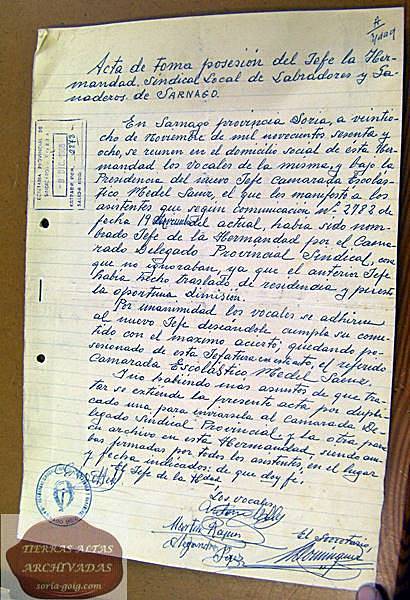 Acta de Toma posesión del Jefe la Her-
mandad, Sindical Local de Labradores y Ga-
naderos de SARNAGO.
En Sarnago provincia Soria, a veintio-
cho de Noviembre de mil novecientos sesenta y
ocho, se reunen en el domicilio social de esta Her-
mandad los vocales de la misma, y bajo la
Presidencia del nuevo Jefe Camarada Escolás-
tico Medel Sainz, el que les manifestó a los
asistentes que según comunicación nº 2783 de
fecha 19 del actual, había sido nom-
brado Jefe de la Hermandad por el Cama-
rada Delegado Provincial Sindical, cosa
que no ignoraban, ya que el anterior Jefe
había hecho traslado de residencia y presentó
la oportuna dimisión.
Por unanimidad los vocales se adhieren
al nuevo Jefe deseandole cumpla su come-
tido con el maximo acierto, quedando po-
sesionado de esta Jefatura el referido
Camarada Escolástico Medel Sainz.
Y no habiendo más asuntos de que tra-
tar se extiende la presente acta por dupli-
cado una para enviarsela al Camarada De-
legado Sindical Provincial y la otra para
su archivo en esta Hermandad, siendo am-
bas firmadas por todos los asistentes, en el lugar
y fecha indicados: de que doy fe.
El Jefe de la Hdad
Los vocales
Martin
El Secretario
Alejandro
TIERRAS ALTAS
ARCHIVADAS
soria-goig.com